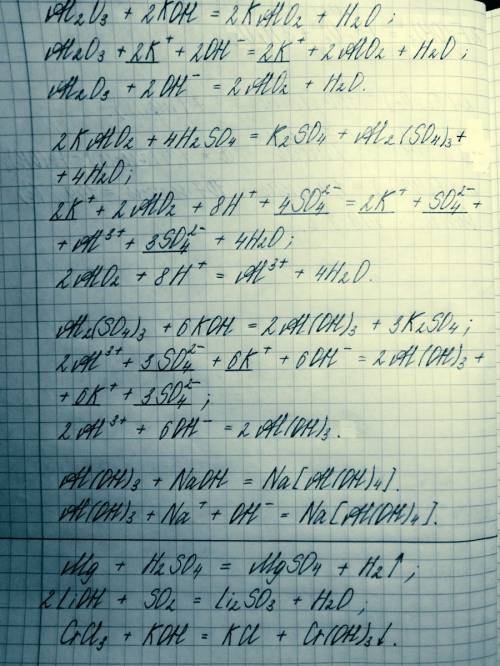 Al₂O₃ + 2KOH = 2KAlO₂ + H₂O;
Al₂O₃ + 2K⁺ + 2OH⁻ = 2K⁺ + 2AlO₂ + H₂O;
Al₂O₃ + 2OH⁻ = 2AlO₂ + H₂O.
2KAlO₂ + 4H₂SO₄ = K₂SO₄ + Al₂(SO₄)₃ +
+ 4H₂O;
2K⁺ + 2AlO₂ + 8H⁺ + 4SO₄²⁻ = 2K⁺ + SO₄²⁻ +
+ Al³⁺ + 3SO₄²⁻ + 4H₂O;
2AlO₂ + 8H⁺ = Al³⁺ + 4H₂O.
Al₂(SO₄)₃ + 6KOH = 2Al(OH)₃ + 3K₂SO₄;
2Al³⁺ + 3SO₄²⁻ + 6K⁺ + 6OH⁻ = 2Al(OH)₃ +
+ 6K⁺ + 3SO₄²⁻;
2Al³⁺ + 6OH⁻ = 2Al(OH)₃.
Al(OH)₃ + NaOH = Na[Al(OH)₄].
Al(OH)₃ + Na⁺ + OH⁻ = Na[Al(OH)₄].
Mg + H₂SO₄ = MgSO₄ + H₂↑;
2LiOH + SO₂ = Li₂SO₃ + H₂O;
CrCl₃ + KOH = KCl + Cr(OH)₃↓.